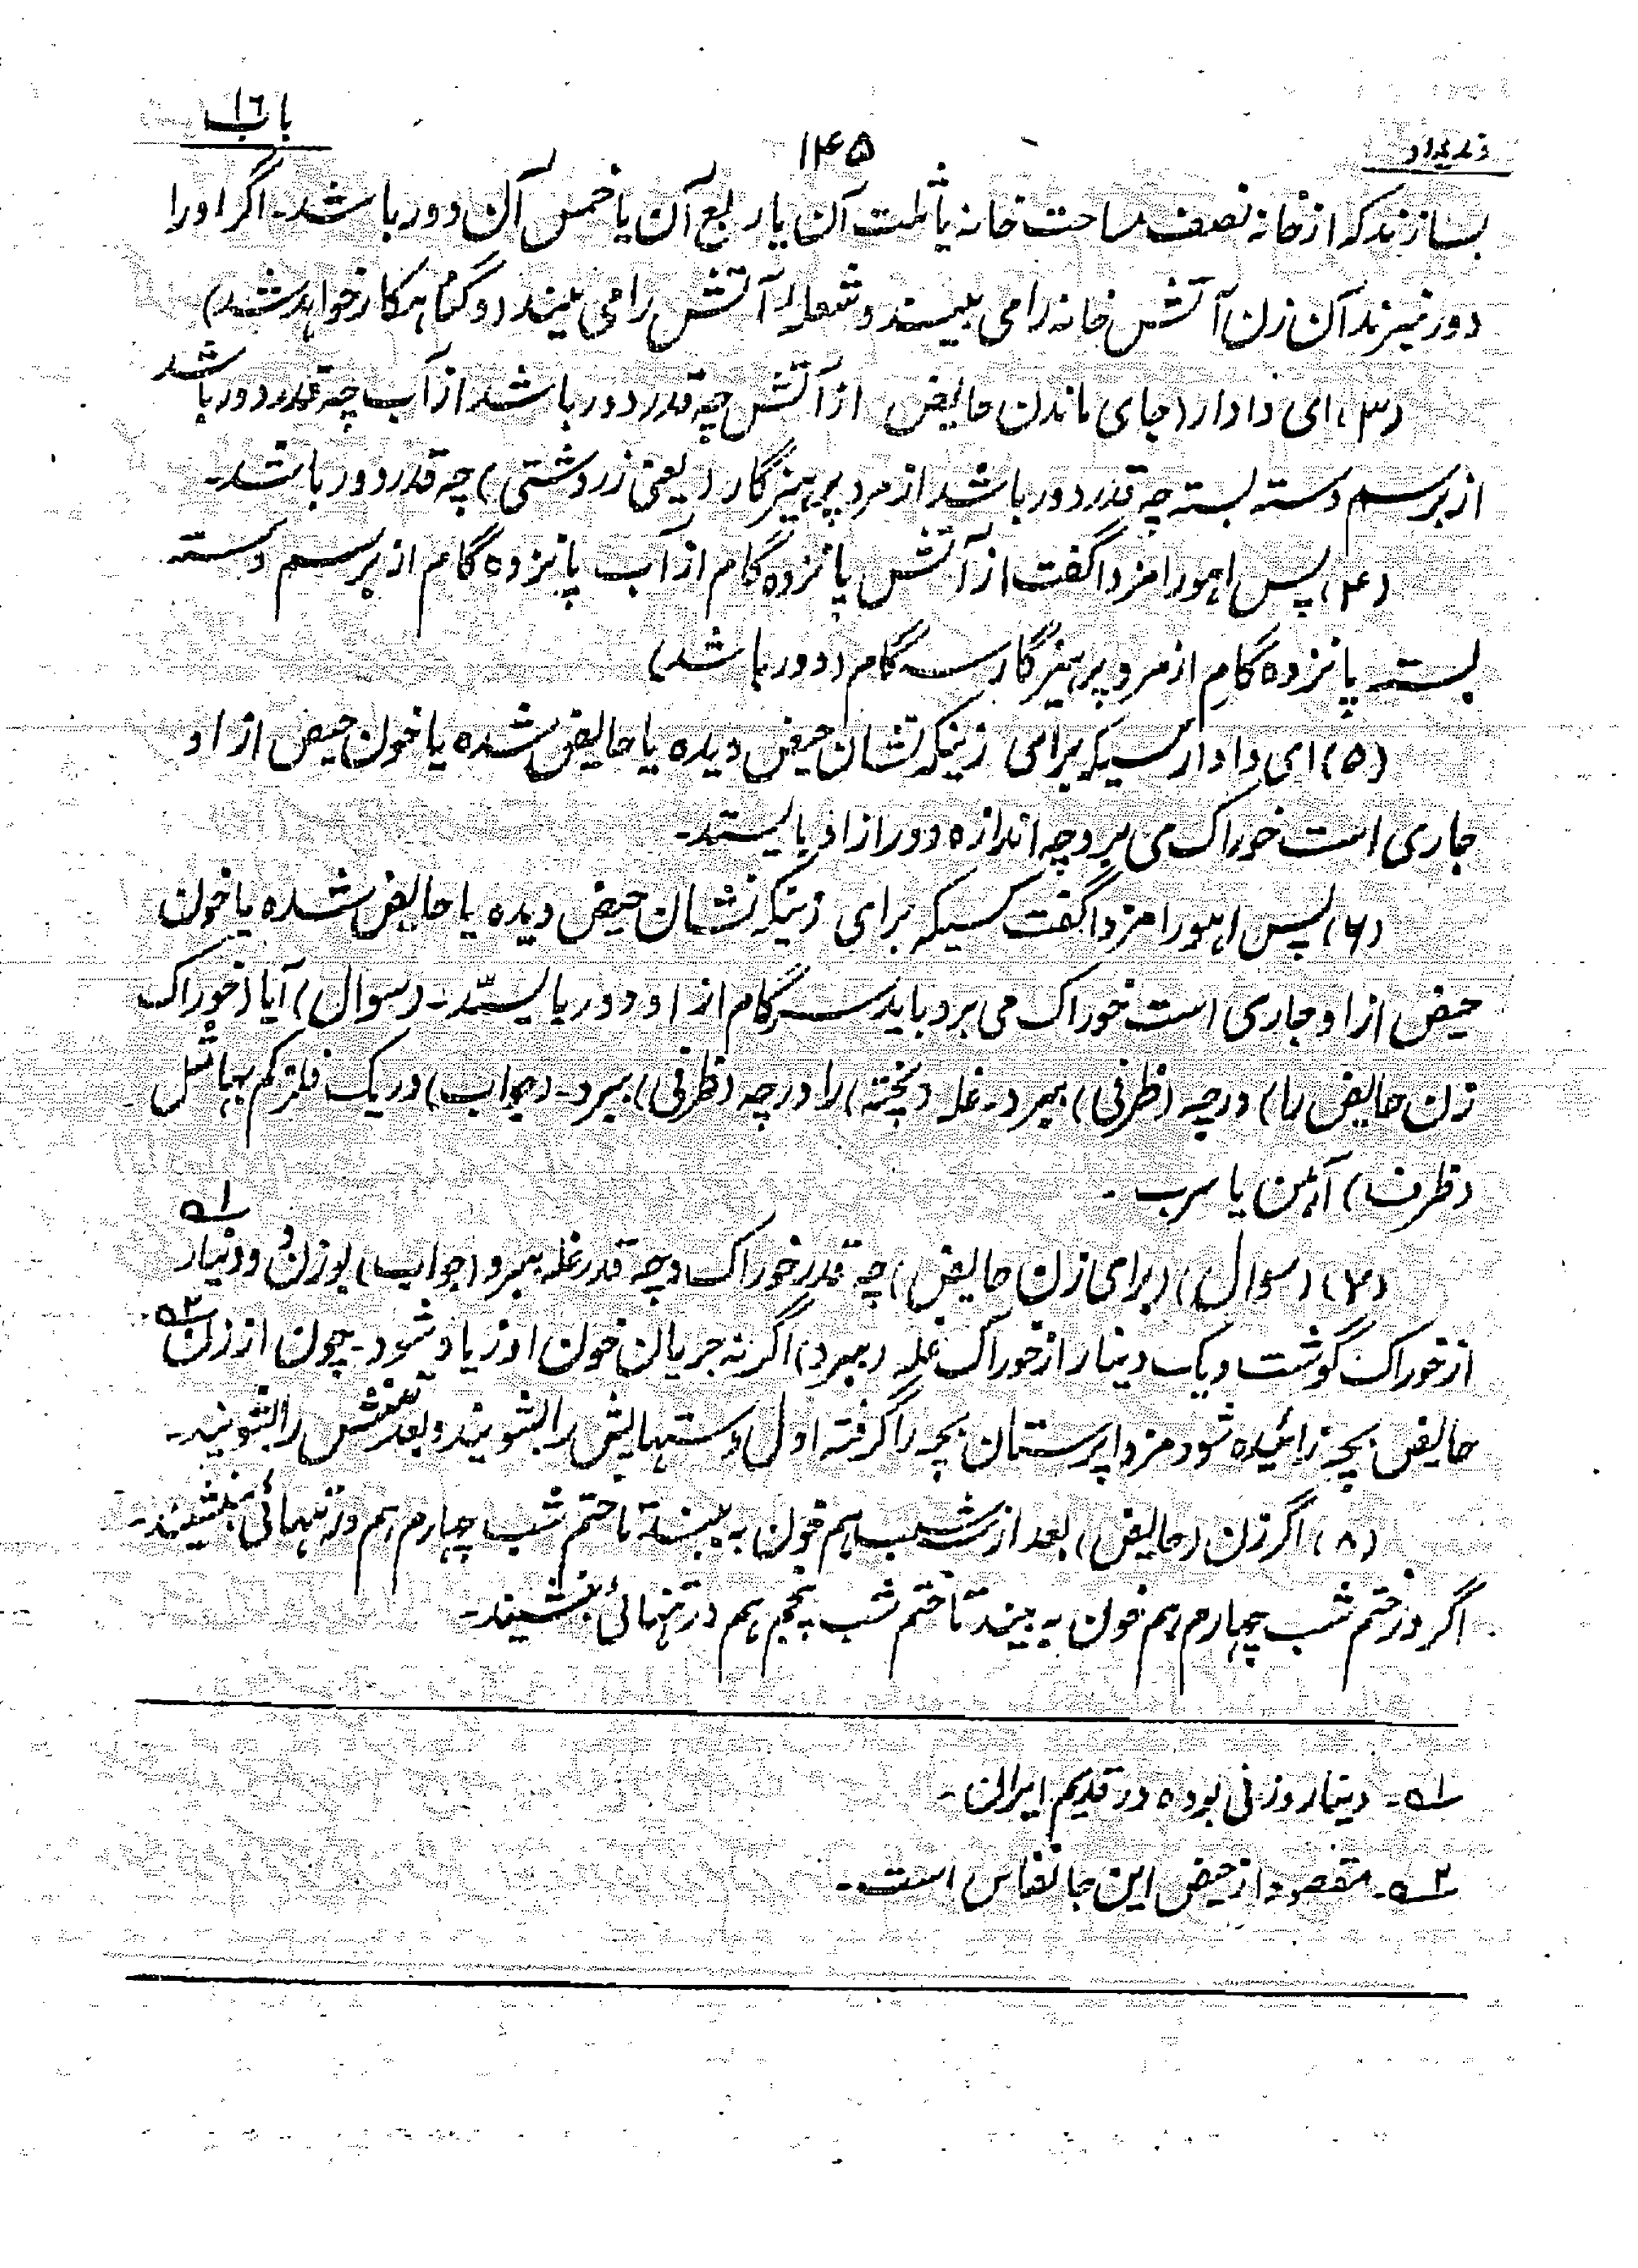 وندیداد
۱۴۵
باب ۱۶
بسازند که از خانه نصف مساحت خانه یا ثلث آن یا ربع آن یا خمس آن دور باشد۔ اگر اورا
دور نبرند آن زن آتش خانه را می بیند و شعلهٔ آتش را می بیند (و گناهکار خواهد شد)
(۳) ای دادار (جای ماندن حایض) از آتش چه قدر دور باشد از آب چه قدر دور باشد
از برسم دسته بسته چه قدر دور باشد از مرد پرهیزگار (یعنی زردشتی) چه قدر دور باشد۔
(۴) پس اهورامزدا گفت از آتش پانزده گام از آب پانزده گام از برسم دسته
بسته پانزده گام از مرد پرهیزگار سه گام (دور باشد)
(۵) ای دادار کسیکه برای زنیکه نشان حیض دیده یا حایض شده یا خون حیض از او
جاری است خوراک می برد چه اندازه دور از او بایستد۔
(۶) پس اهورامزدا گفت کسیکه برای زنیکه نشان حیض دیده یا حایض شده یا خون
حیض از او جاری است خوراک می برد باید سه گام از او دور بایستد۔ (سوال) آیا (خوراک
زن حایض را) درچه (ظرفی) ببرد۔ غله (پخته) را درچه (ظرفی) ببرد۔ (جواب) در یک فلز کم بها مثل
(ظرف) آهن یا سرب۔
(۷) (سوال) (برای زن حایض) چه قدر خوراک و چه قدر غله ببرد (جواب) بوزن دو دینار ۵۱
از خوراک گوشت و یک دینار از خوراک غله (ببرد) اگر نه جریان خون او زیاد شود۔ چون از زن ۵۲
حایض بچه زائیده شود مزداپرستان بچه را گرفته اول دستهایش را بشویند و بعد تنش را بشویند۔
(۸) اگر زن (حایض) بعد از سه شب هم خون به بیند تا ختم شب چهارم هم در تنهائی بنشیند۔
اگر در ختم شب چهارم هم خون به بیند تا ختم شب پنجم هم در تنهائی بنشیند۔
۵۱۔ دینار وزنی بوده در قدیم ایران۔
۵۲۔ مقصود از حیض این جا نفاس است۔